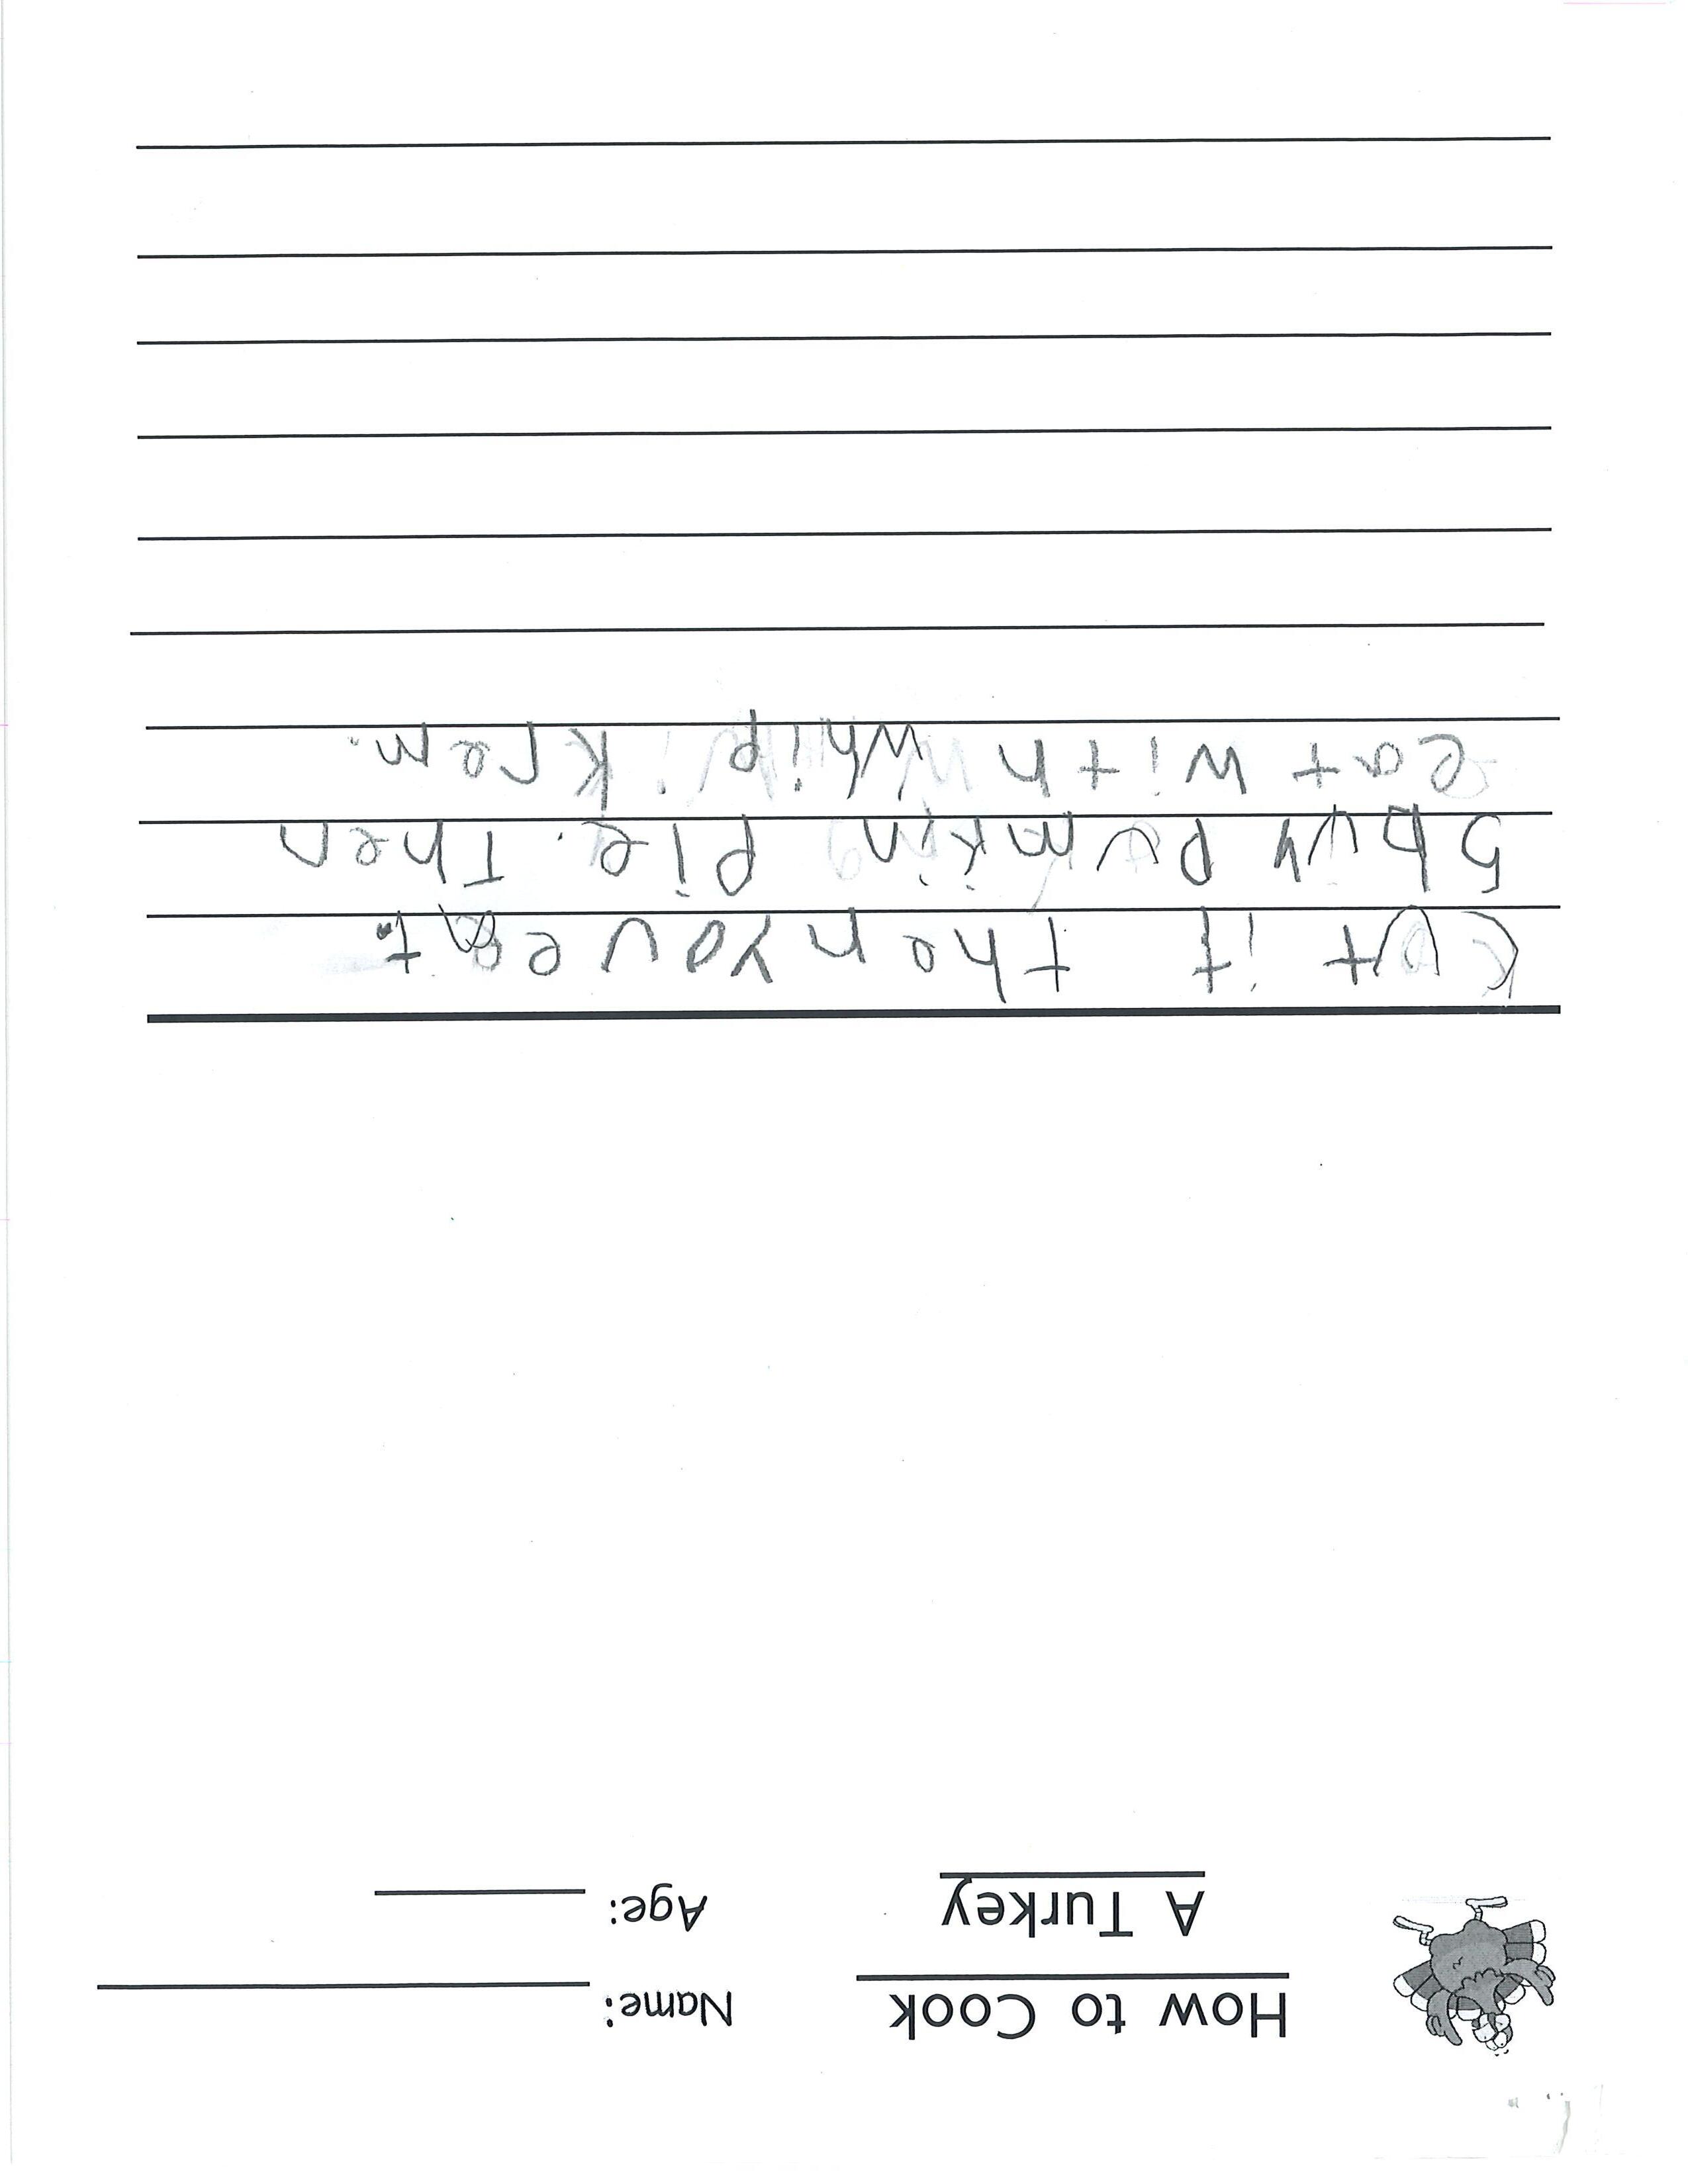 How to Cook Name:
A Turkey Age:
Kut it then you eat.
5 buy pumkin pie. Then
eat with whip krem.